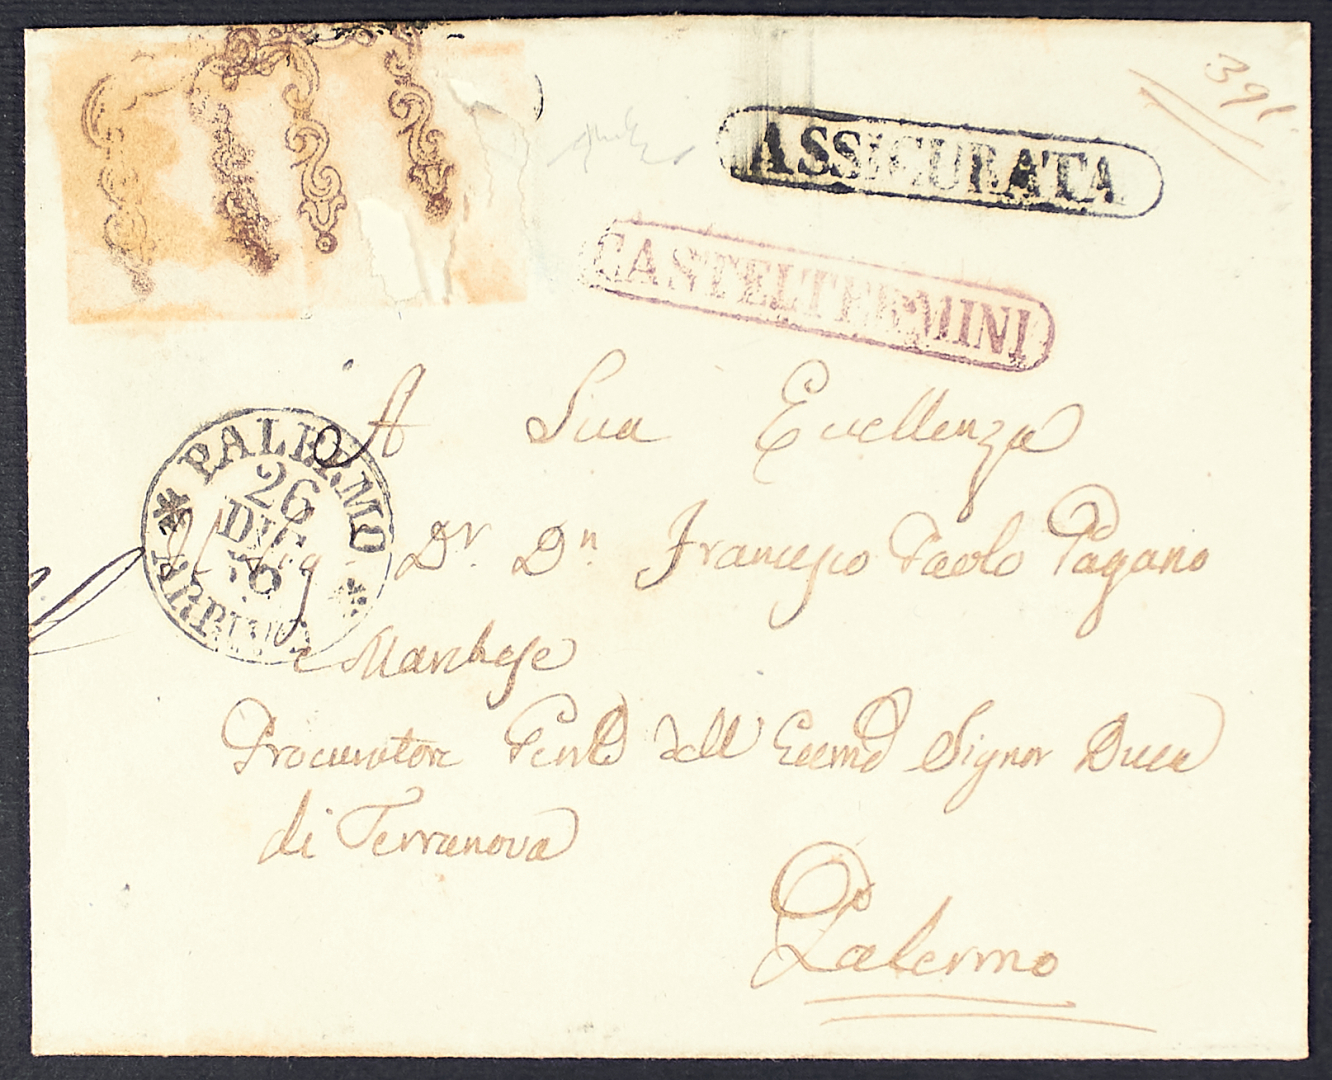 391
ASSICURATA
CASTELTERMINI
A Sua Eccellenza
PALERMO
26
DIC
ARRIVO
Dr. Dn. Francesco Paolo Pagano
e Marchese
Procuratore Genle dell Eccmo Signor Duca
di Terranova
Palermo